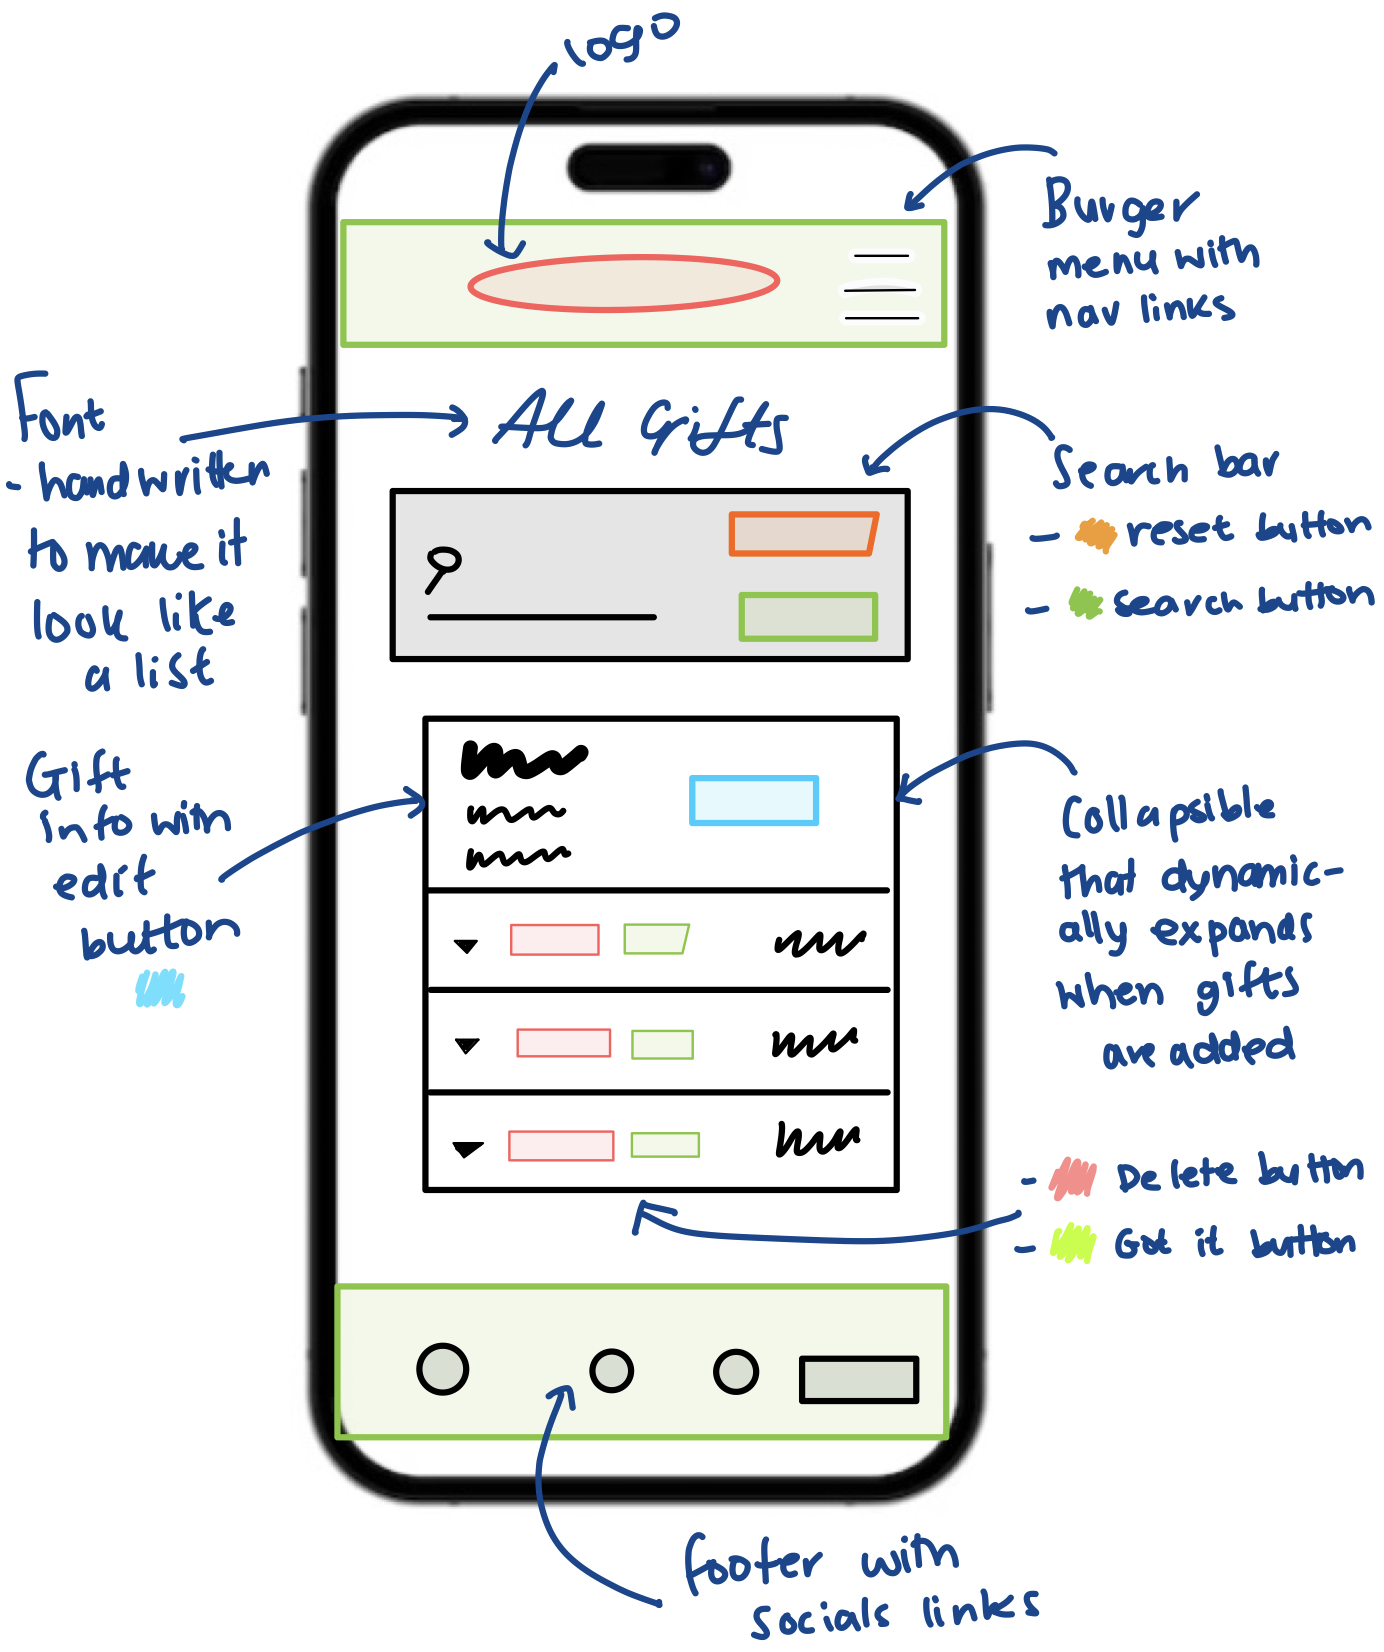 logo
Burger
menu with
nav links
Font
- handwritten
to make it
look like
a list
All Gifts
Search bar
- reset button
- search button
Gift
info with
edit
button
Collapsible
that dynamic-
ally expands
when gifts
are added
- Delete button
- Got it button
footer with
socials links